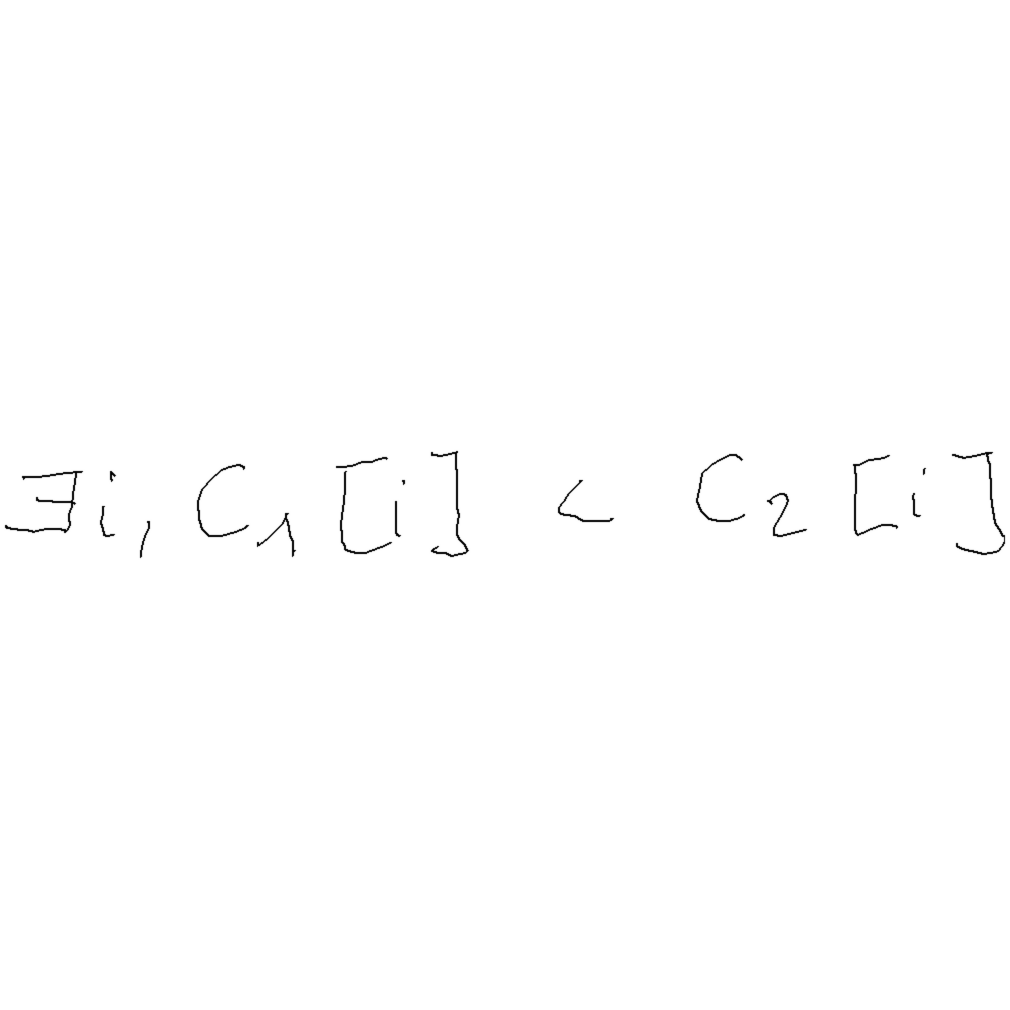 ∃i, C₁[i] < C₂[i]